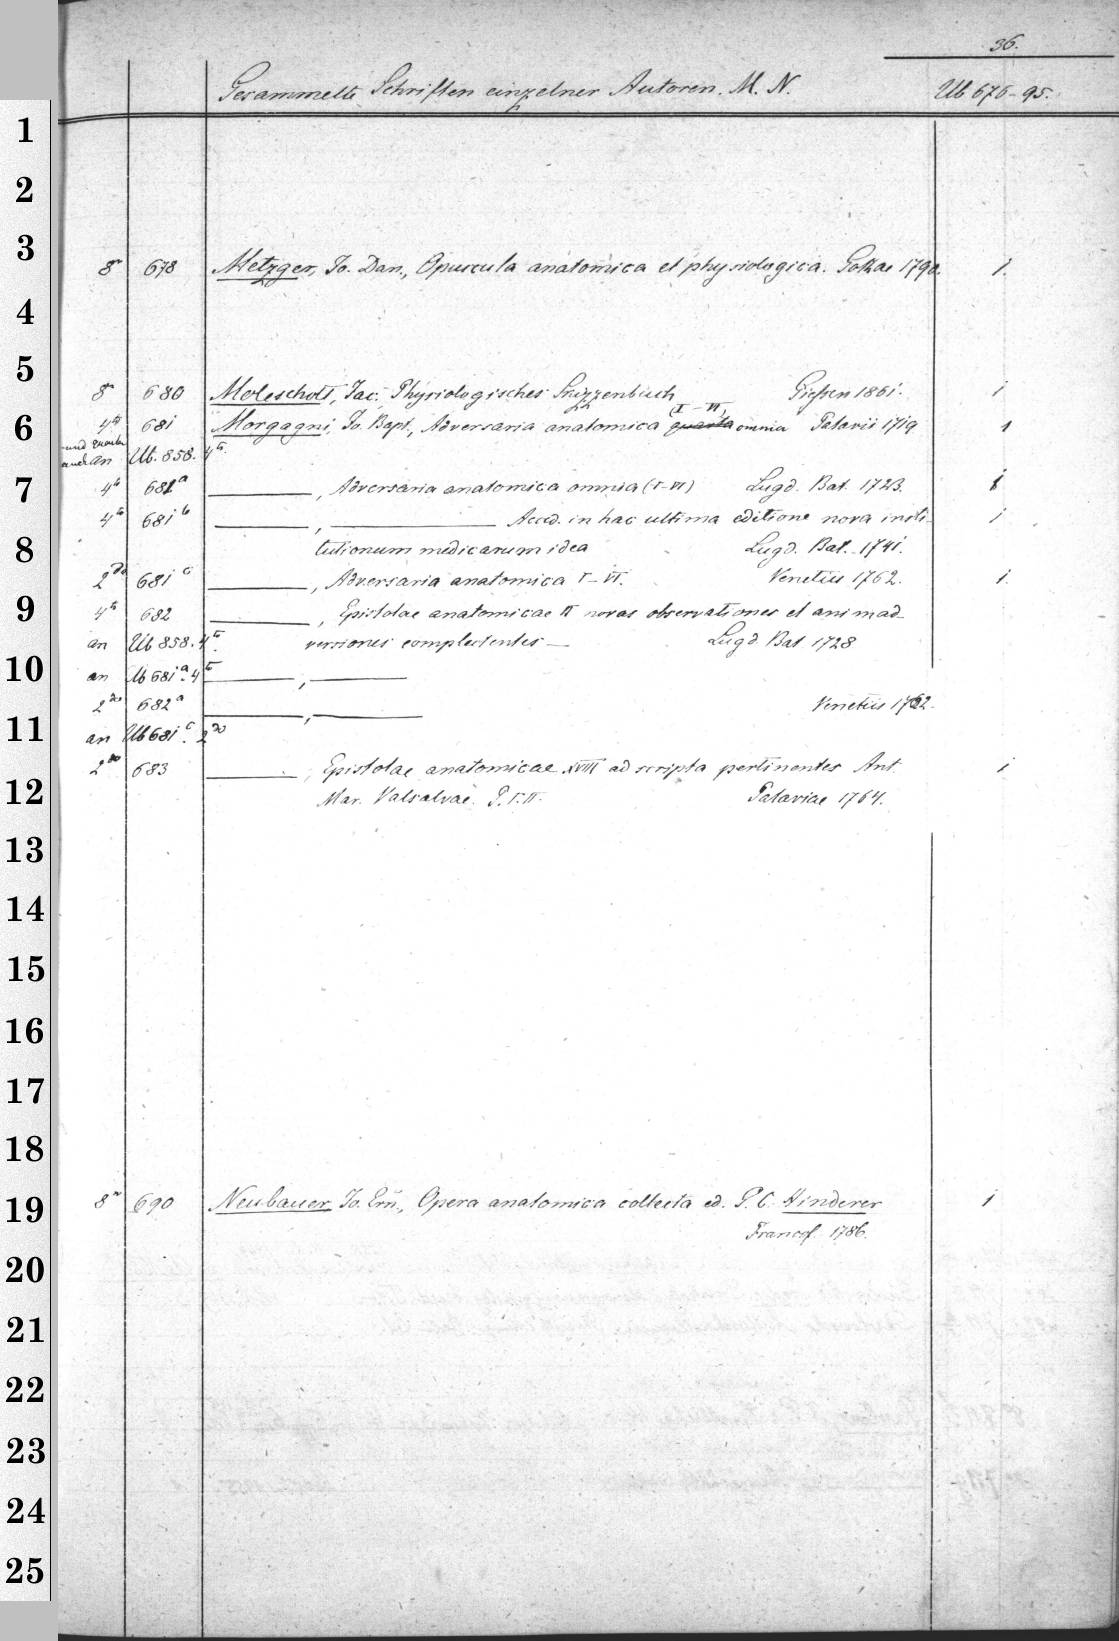 36.
Gesammelte Schriften einzelner Autoren. M. N. Ub 676-95.
1
2
3
8° 678 Metzger, Jo. Dan., Opuscula anatomica et physiologica. Gothae 1790. 1.
4
5
8° 680 Moleschott, Jac. Physiologisches Skizzenbuch Gießen 1861. 1
6
4to 681 Morgagni, Jo. Bapt., Adversaria anatomica quarta (I-VI) omnia Patavii 1719 1
auch an Ub. 858. 4to.
7
4to 681a ———, Adversaria anatomica omnia (I-VI) Lugd. Bat. 1723. 1
4to 681b ———, ——— Acced. in hac ultima editione nova insti-
8
tutionum medicarum idea Lugd. Bat. 1741. 1
2do 681c ———, Adversaria anatomica I-VI. Venetiis 1762. 1.
9
4to 682 ———, Epistolae anatomicae II novas observationes et animad-
an Ub 858. 4to. versiones complectentes — Lugd Bat 1728
10
an Ub 681a. 4to ———, ———
2do 682a ———, ——— Venetiis 1762.
11
an Ub 681c. 2do
2do 683 ———, Epistolae anatomicae XVIII ad scripta pertinentes Ant. 1
12
Mar. Valsalvae. P. I. II. Pataviae 1764.
13
14
15
16
17
18
19
8° 690 Neubauer, Jo. Ern., Opera anatomica collecta ed. P. C. Hinderer 1
Francof. 1786.
20
21
22
23
24
25